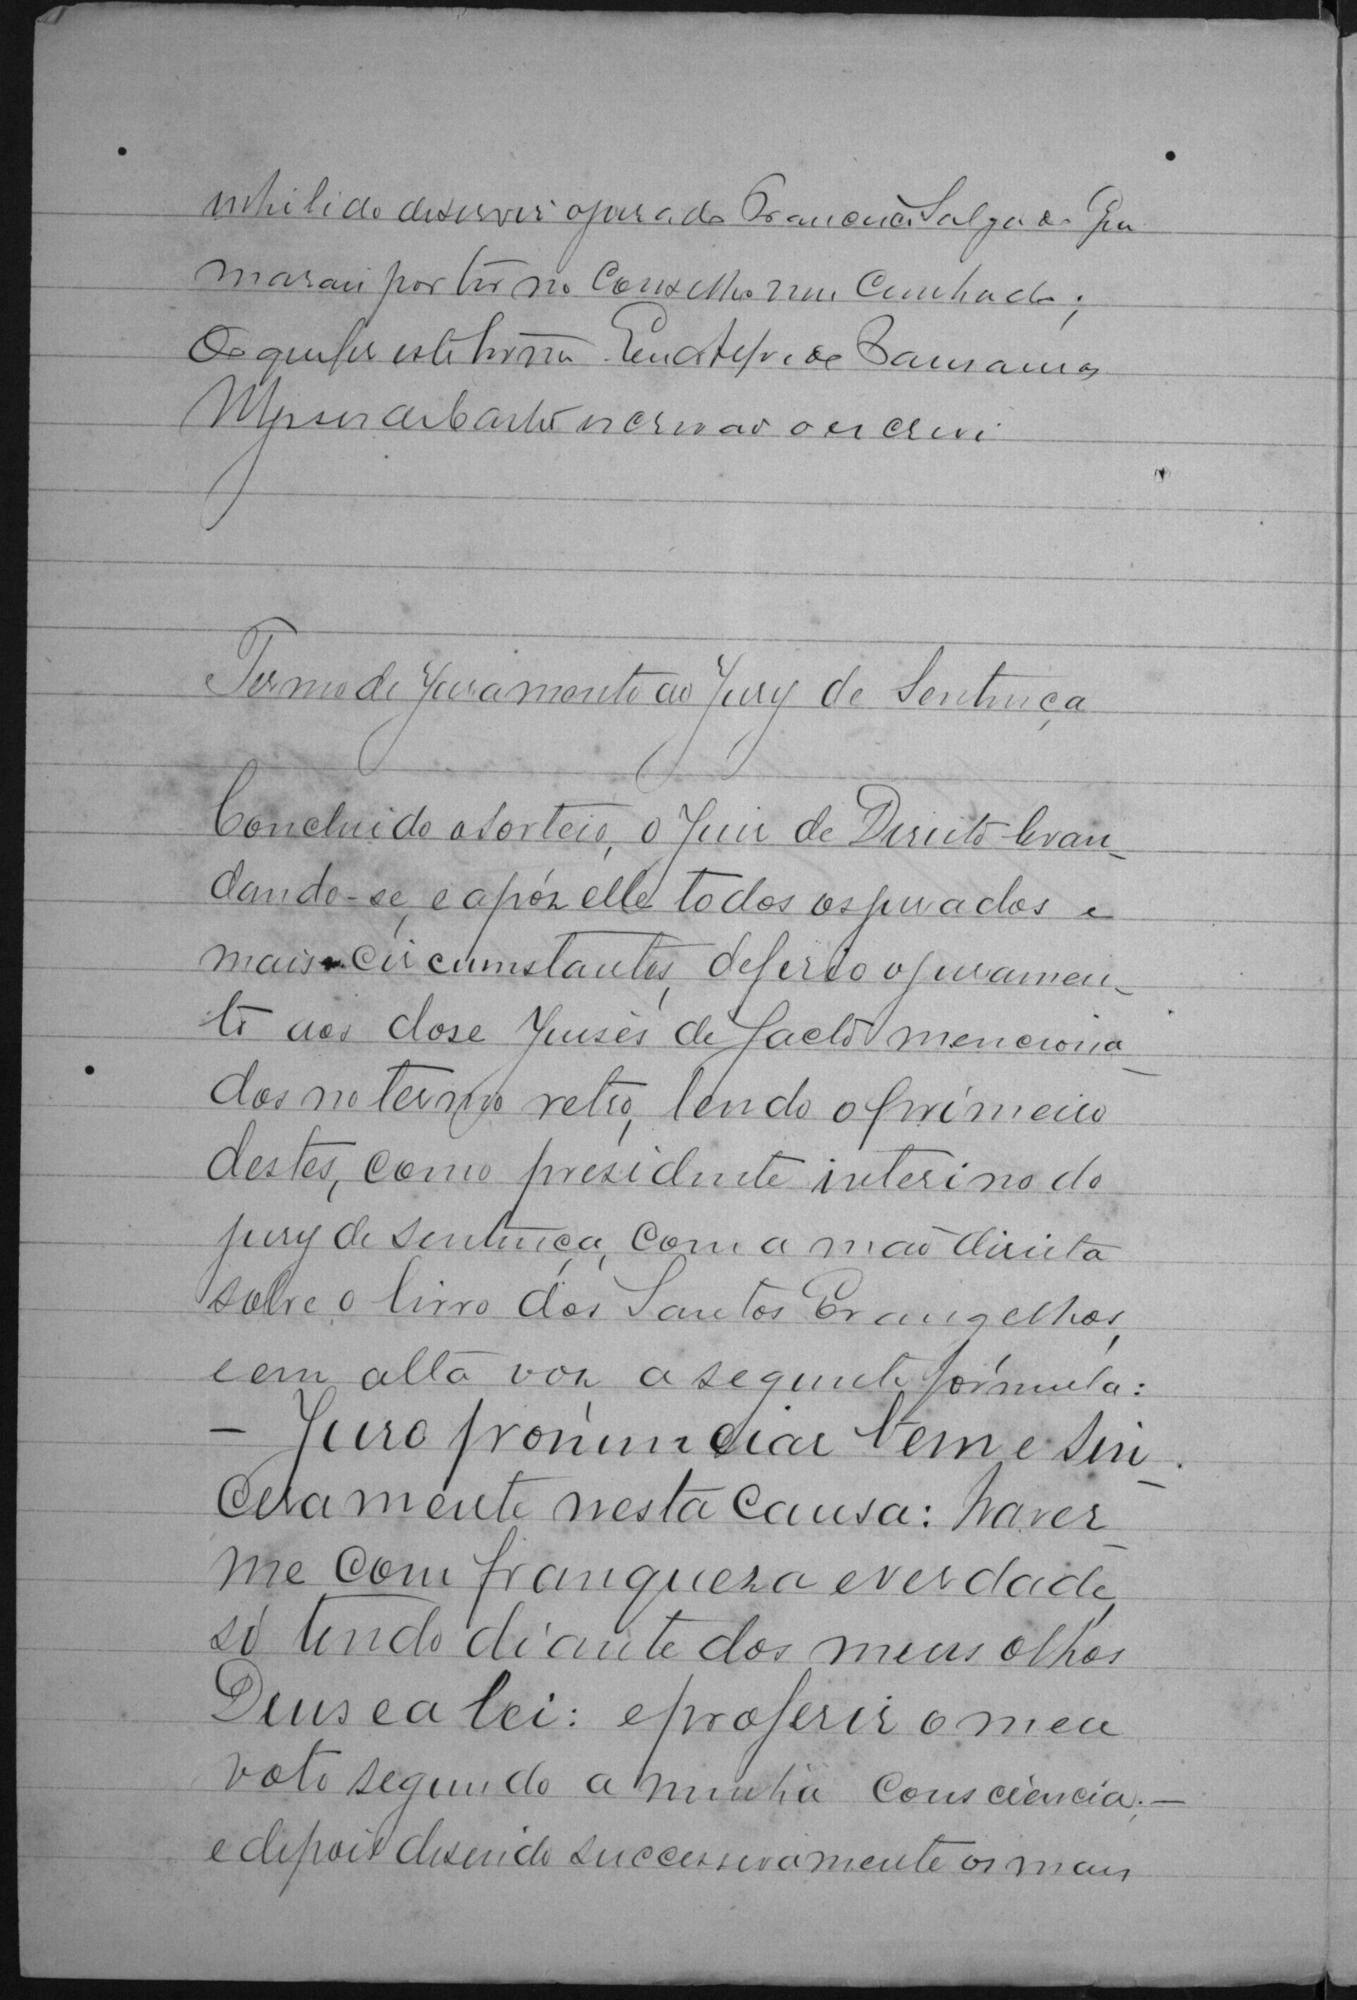 nhibido deservir o jurado Francisco Salgado Gui
marais por ter no Conselho um Cunhado;
Do que fiz este termo Eu
escrivão o escrevi
Termo de Juramento ao Jury de Sentença
Concluido o sorteio, o Juiz de Direito levan-
dando-se, e apóz elle todos os jurados e
mais circumstantes, deferio o juramen-
to aos dose Juisès de facto menciona-
dos no termo retro, lendo o primeiro
destes, como presidente interino do
jury de sentença, com a mão direita
sobre o livro dos Santos Evangelhos,
e em alta voz a seguinte fórmula:
— Juro pronunciar bem e sin-
ceramente nesta causa: haver-
me com franqueza e verdade,
só tendo diante dos meus olhos
Deus e a lei: e proferir o meu
voto segundo a minha consciencia; —
e depois disendo successivamente os mais